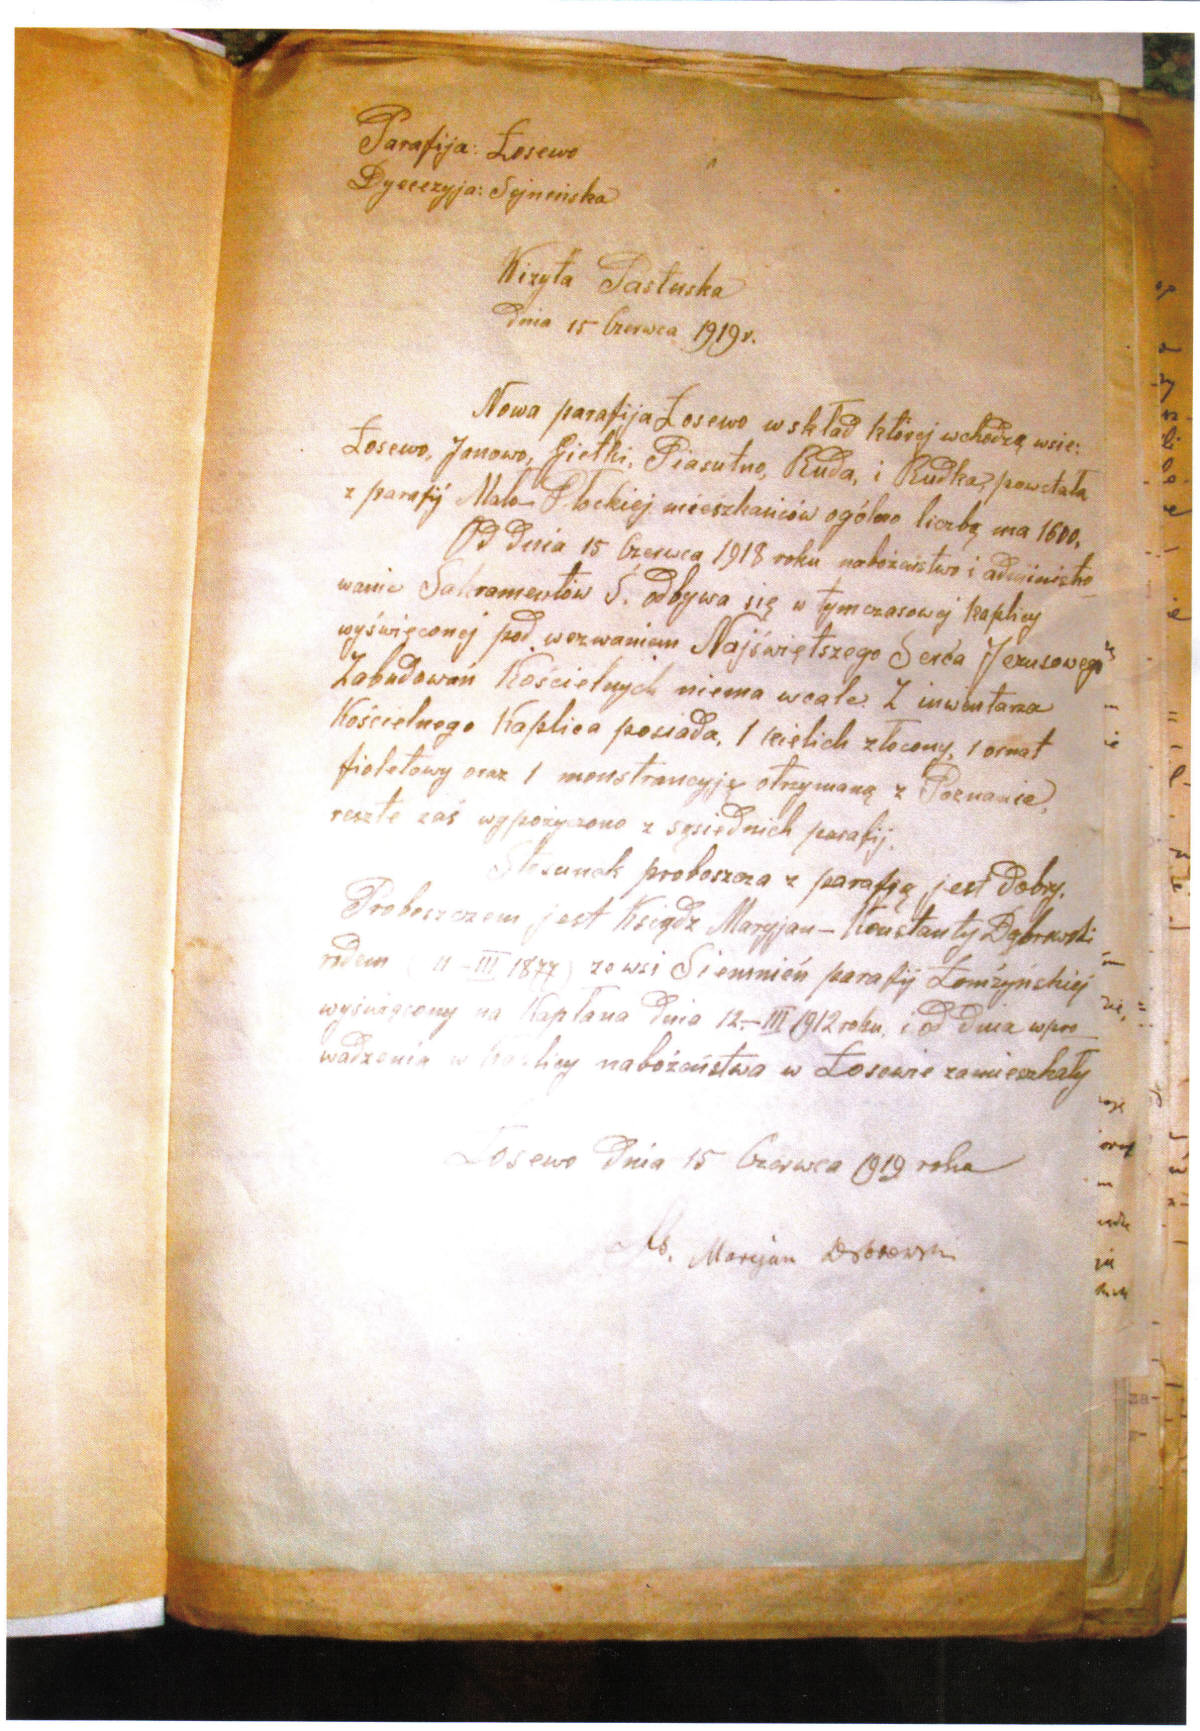 Parafija: Łosewo
Dyecezyja: Sejneńska
Wizyta Pasterska
dnia 15 Czerwca 1919 r.
Nowa parafija Łosewo w skład której wchodzą wsie:
Łosewo, Janowo, Gietki, Piasutno, Ruda, i Rudka, powstała
z parafij Mało-Płockiej mieszkańców ogólno liczbą ma 1600.
Od dnia 15 Czerwca 1918 roku nabożeństwo i administro
wanie Sakramentów Ś. odbywa się w tymczasowej kaplicy
wyświęconej pod wezwaniem Najświętszego Serca Jezusowego"
Zabudowań Kościelnych niema wcale. Z inwentarza
Kościelnego Kaplica posiada, 1 kielich złocony, 1 ornat
fioletowy oraz 1 monstrancyję otrzymaną z Poznania,
resztę zaś wypożyczono z sąsiednich parafij.
Stosunek proboszcza z parafią jest dobry.
Proboszczem jest Ksiądz Maryjan-Konstanty Dąbrowski
rodem (11-III 1877) ze wsi Siemnień parafij Łomżyńskiej
wyświęcony na Kapłana dnia 12.-III 1912 roku, i od dnia wpro
wadzenia w Kaplicy nabożeństwa w Łosewie zamieszkały
Łosewo dnia 15 Czerwca 1919 roku
Ks. Maryjan Dąbrowski